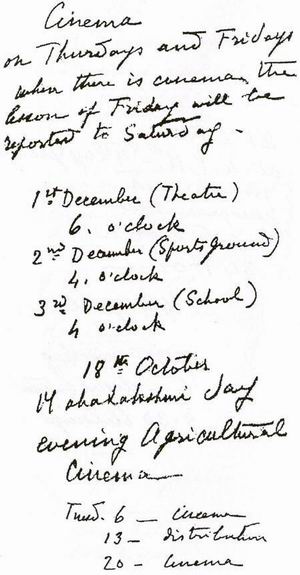 Cinema
on Thursdays and Fridays
when there is cinema, the
lesson of Friday will be
reported to Saturday.
1st December (Theatre)
6. o'clock
2nd December (Sports Ground)
4. o'clock
3rd December (School)
4 o'clock
18th October
Mahalakshmi day
evening Agricultural
Cinema
Tuesd. 6 — cinema
13 — distribution
20 — cinema